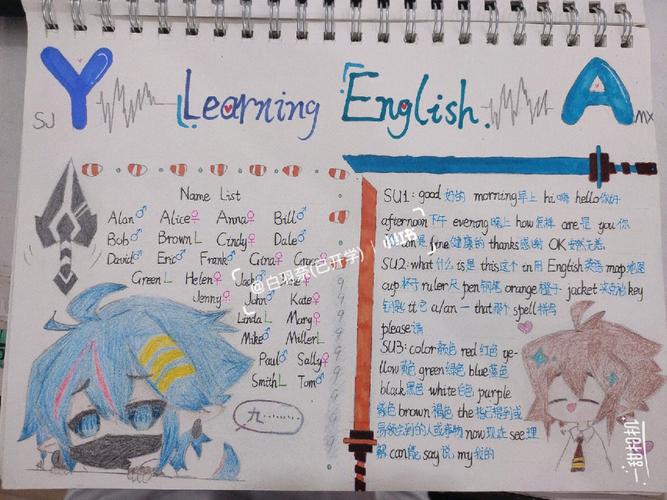 Y Learning English. A
SJ
MX
Name List
Alan♂ Alice♀ Anna♀ Bill♂
Bob♂ Brown L Cindy♀ Dale♂
David♂ Eric♂ Frank♂ Gina♀
Green L Helen♀
Jenny♀ John♂ Kate♀
Linda L Mary♀
Mike♂ Miller L
Paul♂ Sally♀
Smith L Tom♂
九……
SU1: good 好的 morning 早上 hi 嗨 hello 你好
afternoon 下午 evening 晚上 how 怎样 are 是 you 你
fine 健康的 thanks 感谢 OK
SU2: what 什么 is 是 this 这个 in 用 English 英语 map 地图
cup 杯子 ruler 尺 pen 钢笔 orange 橙子 jacket 夹克衫 key
钥匙 it 它 a/an 一 that 那个 spell 拼写
please 请
SU3: color 颜色 red 红色 ye-
llow 黄色 green 绿色 blue 蓝色
black 黑色 white 白色 purple
紫色 brown 棕色 the 指已提到或
易领会到的人或事物 now 现在 see 理
解 can 能 say 说 my 我的
@白羽奈(已开学) | 小红书
甜相机